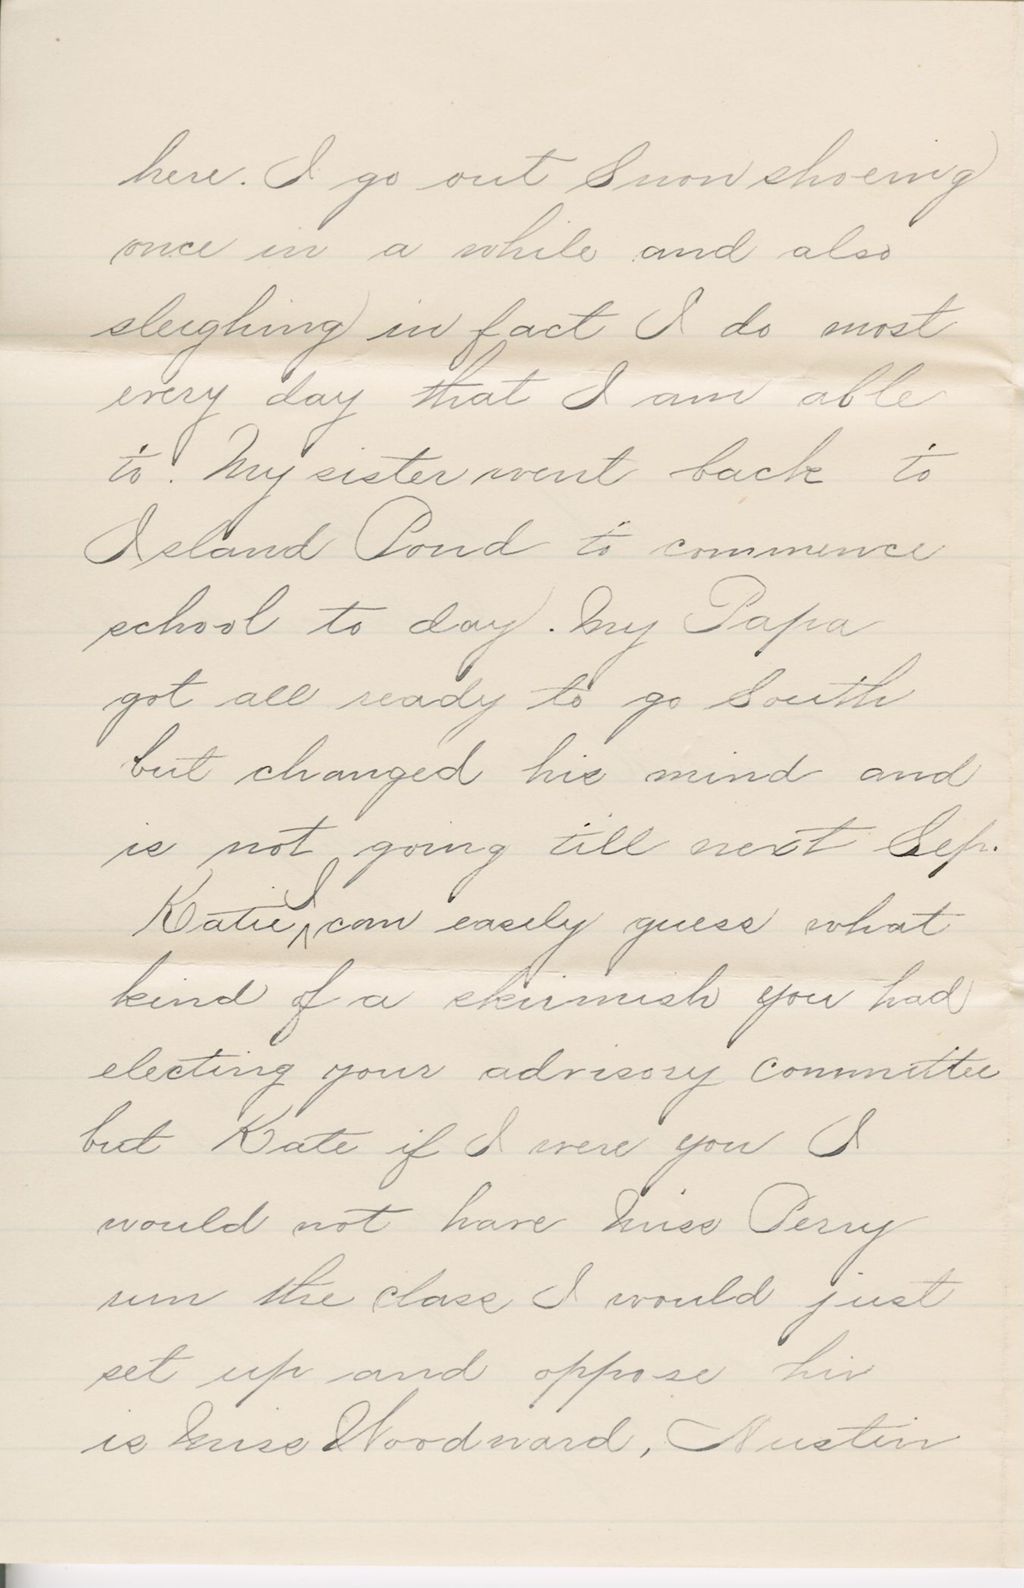 here. I go out Snow shoeing
once in a while and also
sleighing in fact I do most
every day that I am able
to. My sister went back to
Island Pond to commence
school to day. My Papa
got all ready to go South
but changed his mind and
is not going till next Sep.
Katie I can easily guess what
kind of a skirmish you had
electing your advisory committee
but Kate if I were you I
would not have Miss Perry
run the class I would just
set up and oppose her
is Miss Woodward, Austin